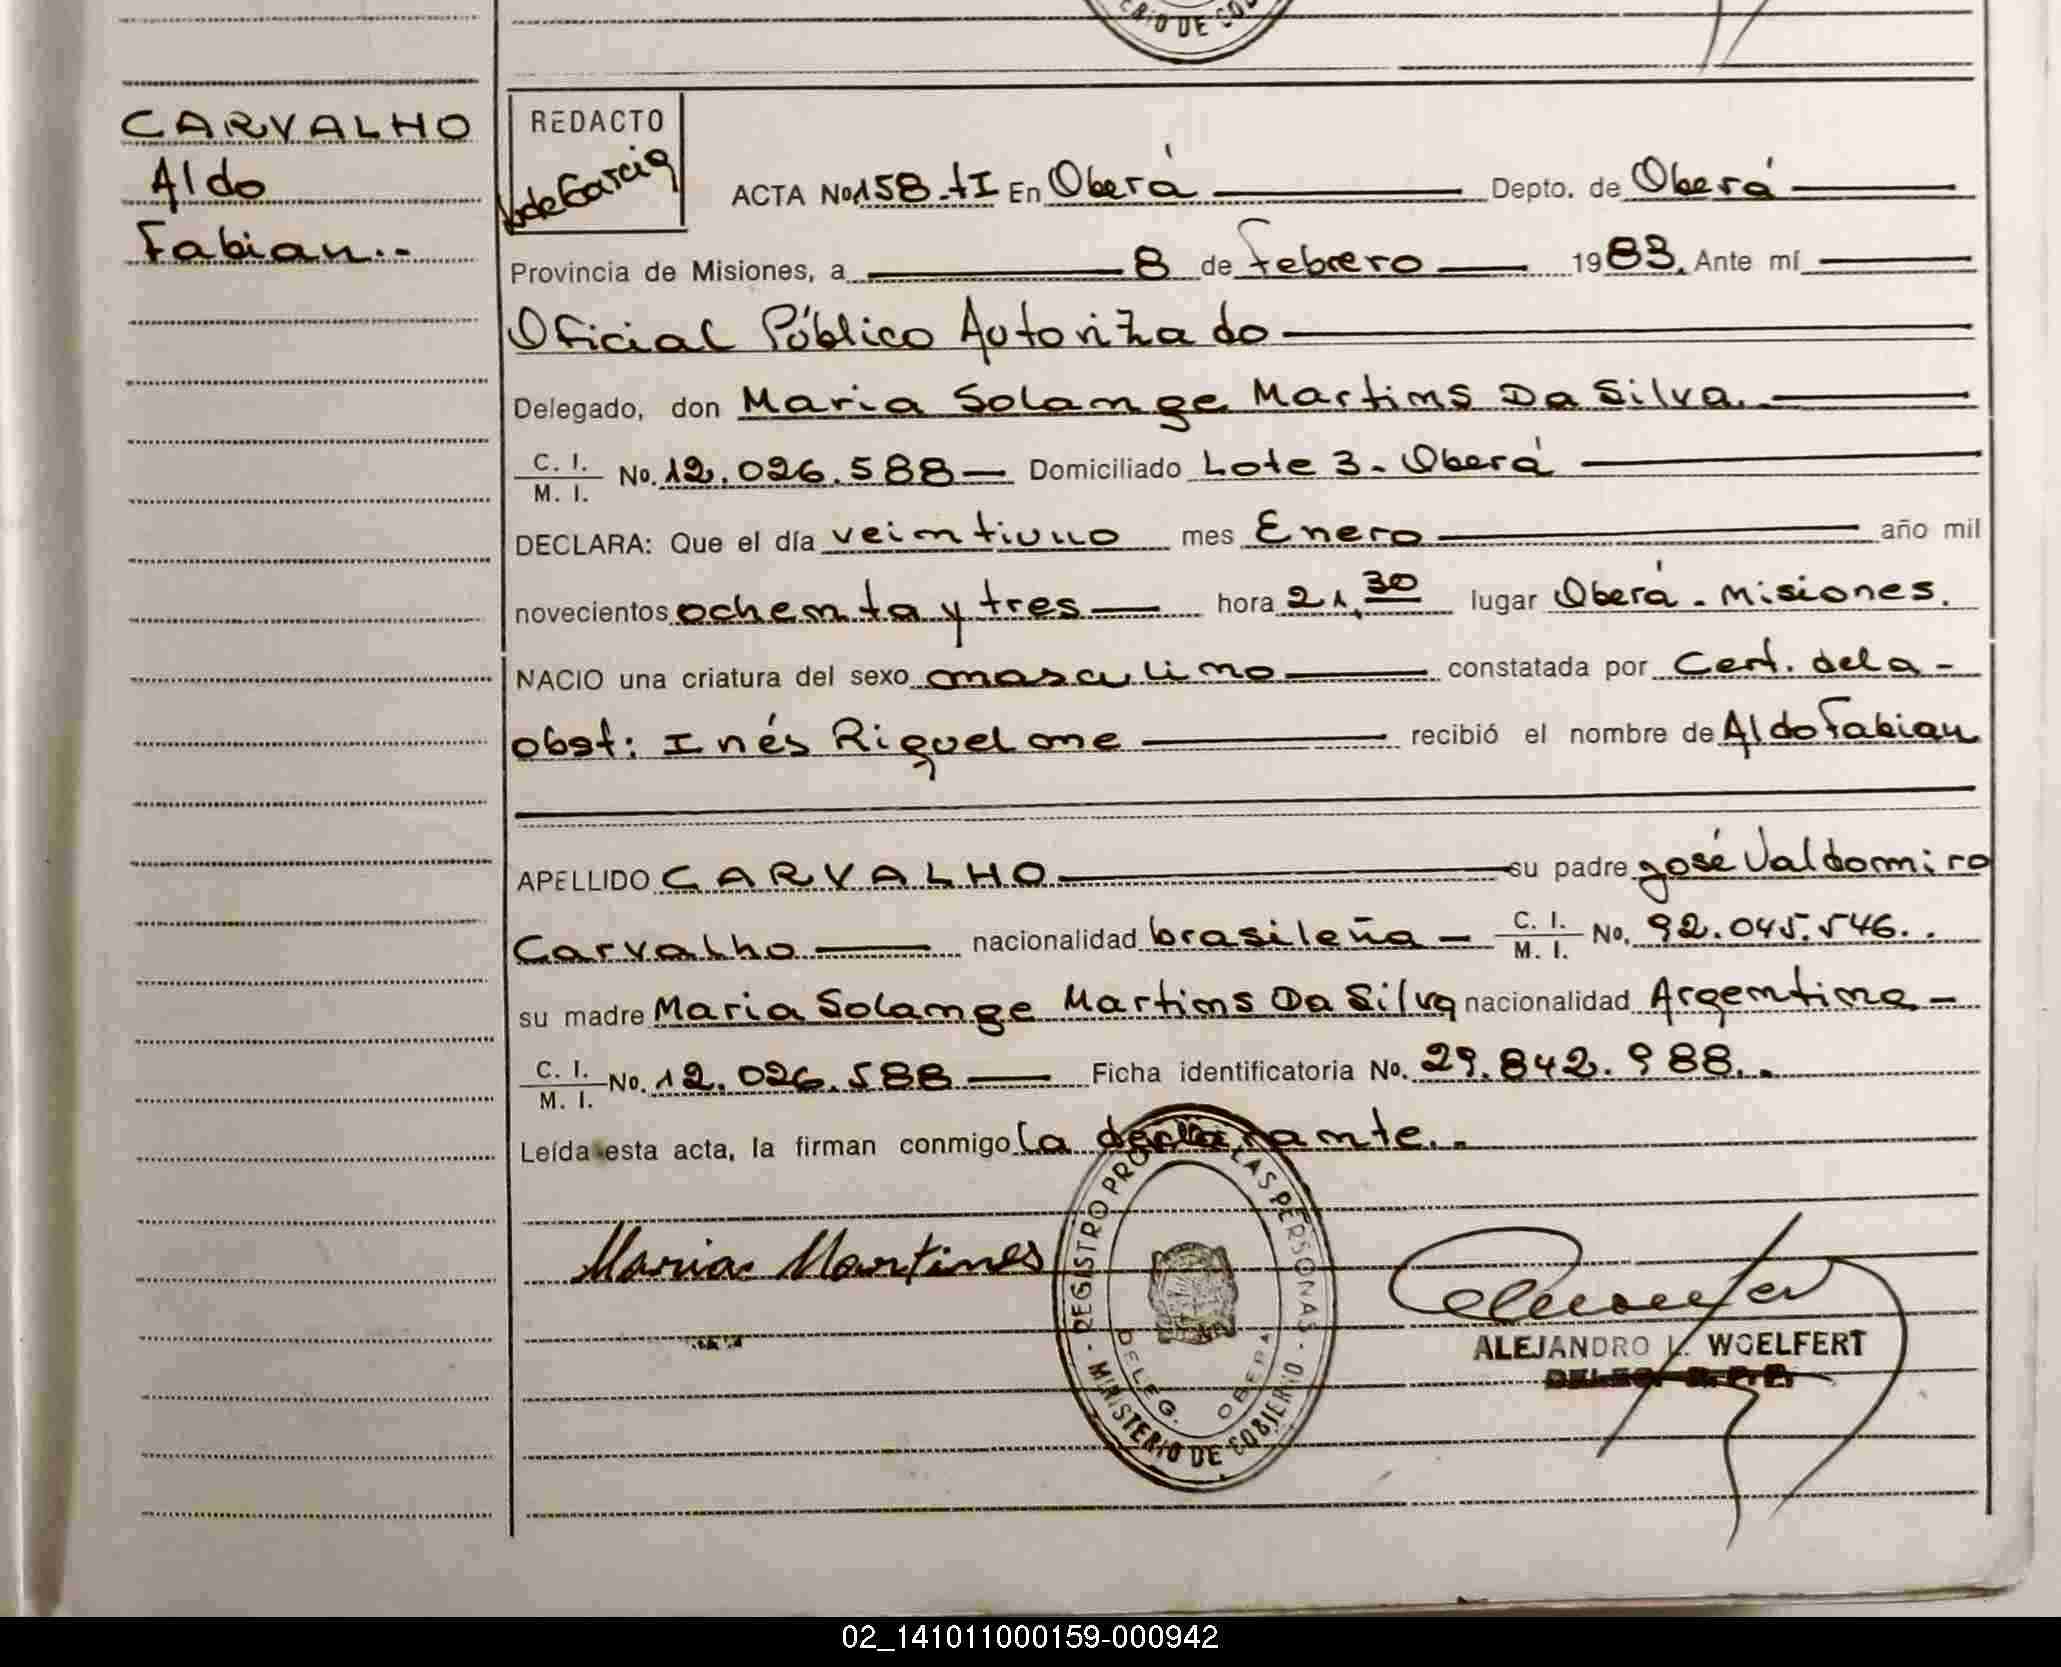 ERIO DE GOB
CARVALHO
Aldo
Fabian..
REDACTO
de Garcia
ACTA No 158-tI En Oberá Depto. de Oberá
Provincia de Misiones, a 8 de Febrero 1983. Ante mí
Oficial Público Autorizado
Delegado, don Maria Solange Martins Da Silva.
C. I.
M. I. No. 12.026.588 Domiciliado Lote 3 - Oberá
DECLARA: Que el día veintiuno mes Enero año mil
novecientos ochenta y tres hora 21,30 lugar Oberá - Misiones.
NACIO una criatura del sexo masculino constatada por Cert. de la -
obst: Inés Riquelme recibió el nombre de Aldo Fabian
APELLIDO CARVALHO su padre José Valdormiro
Carvalho nacionalidad brasileña - C. I.
M. I. No. 92.045.546..
su madre Maria Solange Martins Da Silva nacionalidad Argentina -
C. I.
M. I. No. 12.026.588 Ficha identificatoria No. 29.842.988..
Leída esta acta, la firman conmigo la declarante..
Maria Martines
REGISTRO PRO LAS PERSONAS - MINISTERIO DE GOBIERNO -
DELEG. OBERA
ALEJANDRO L. WOELFERT
DELEG. R.P.P.
02_141011000159-000942